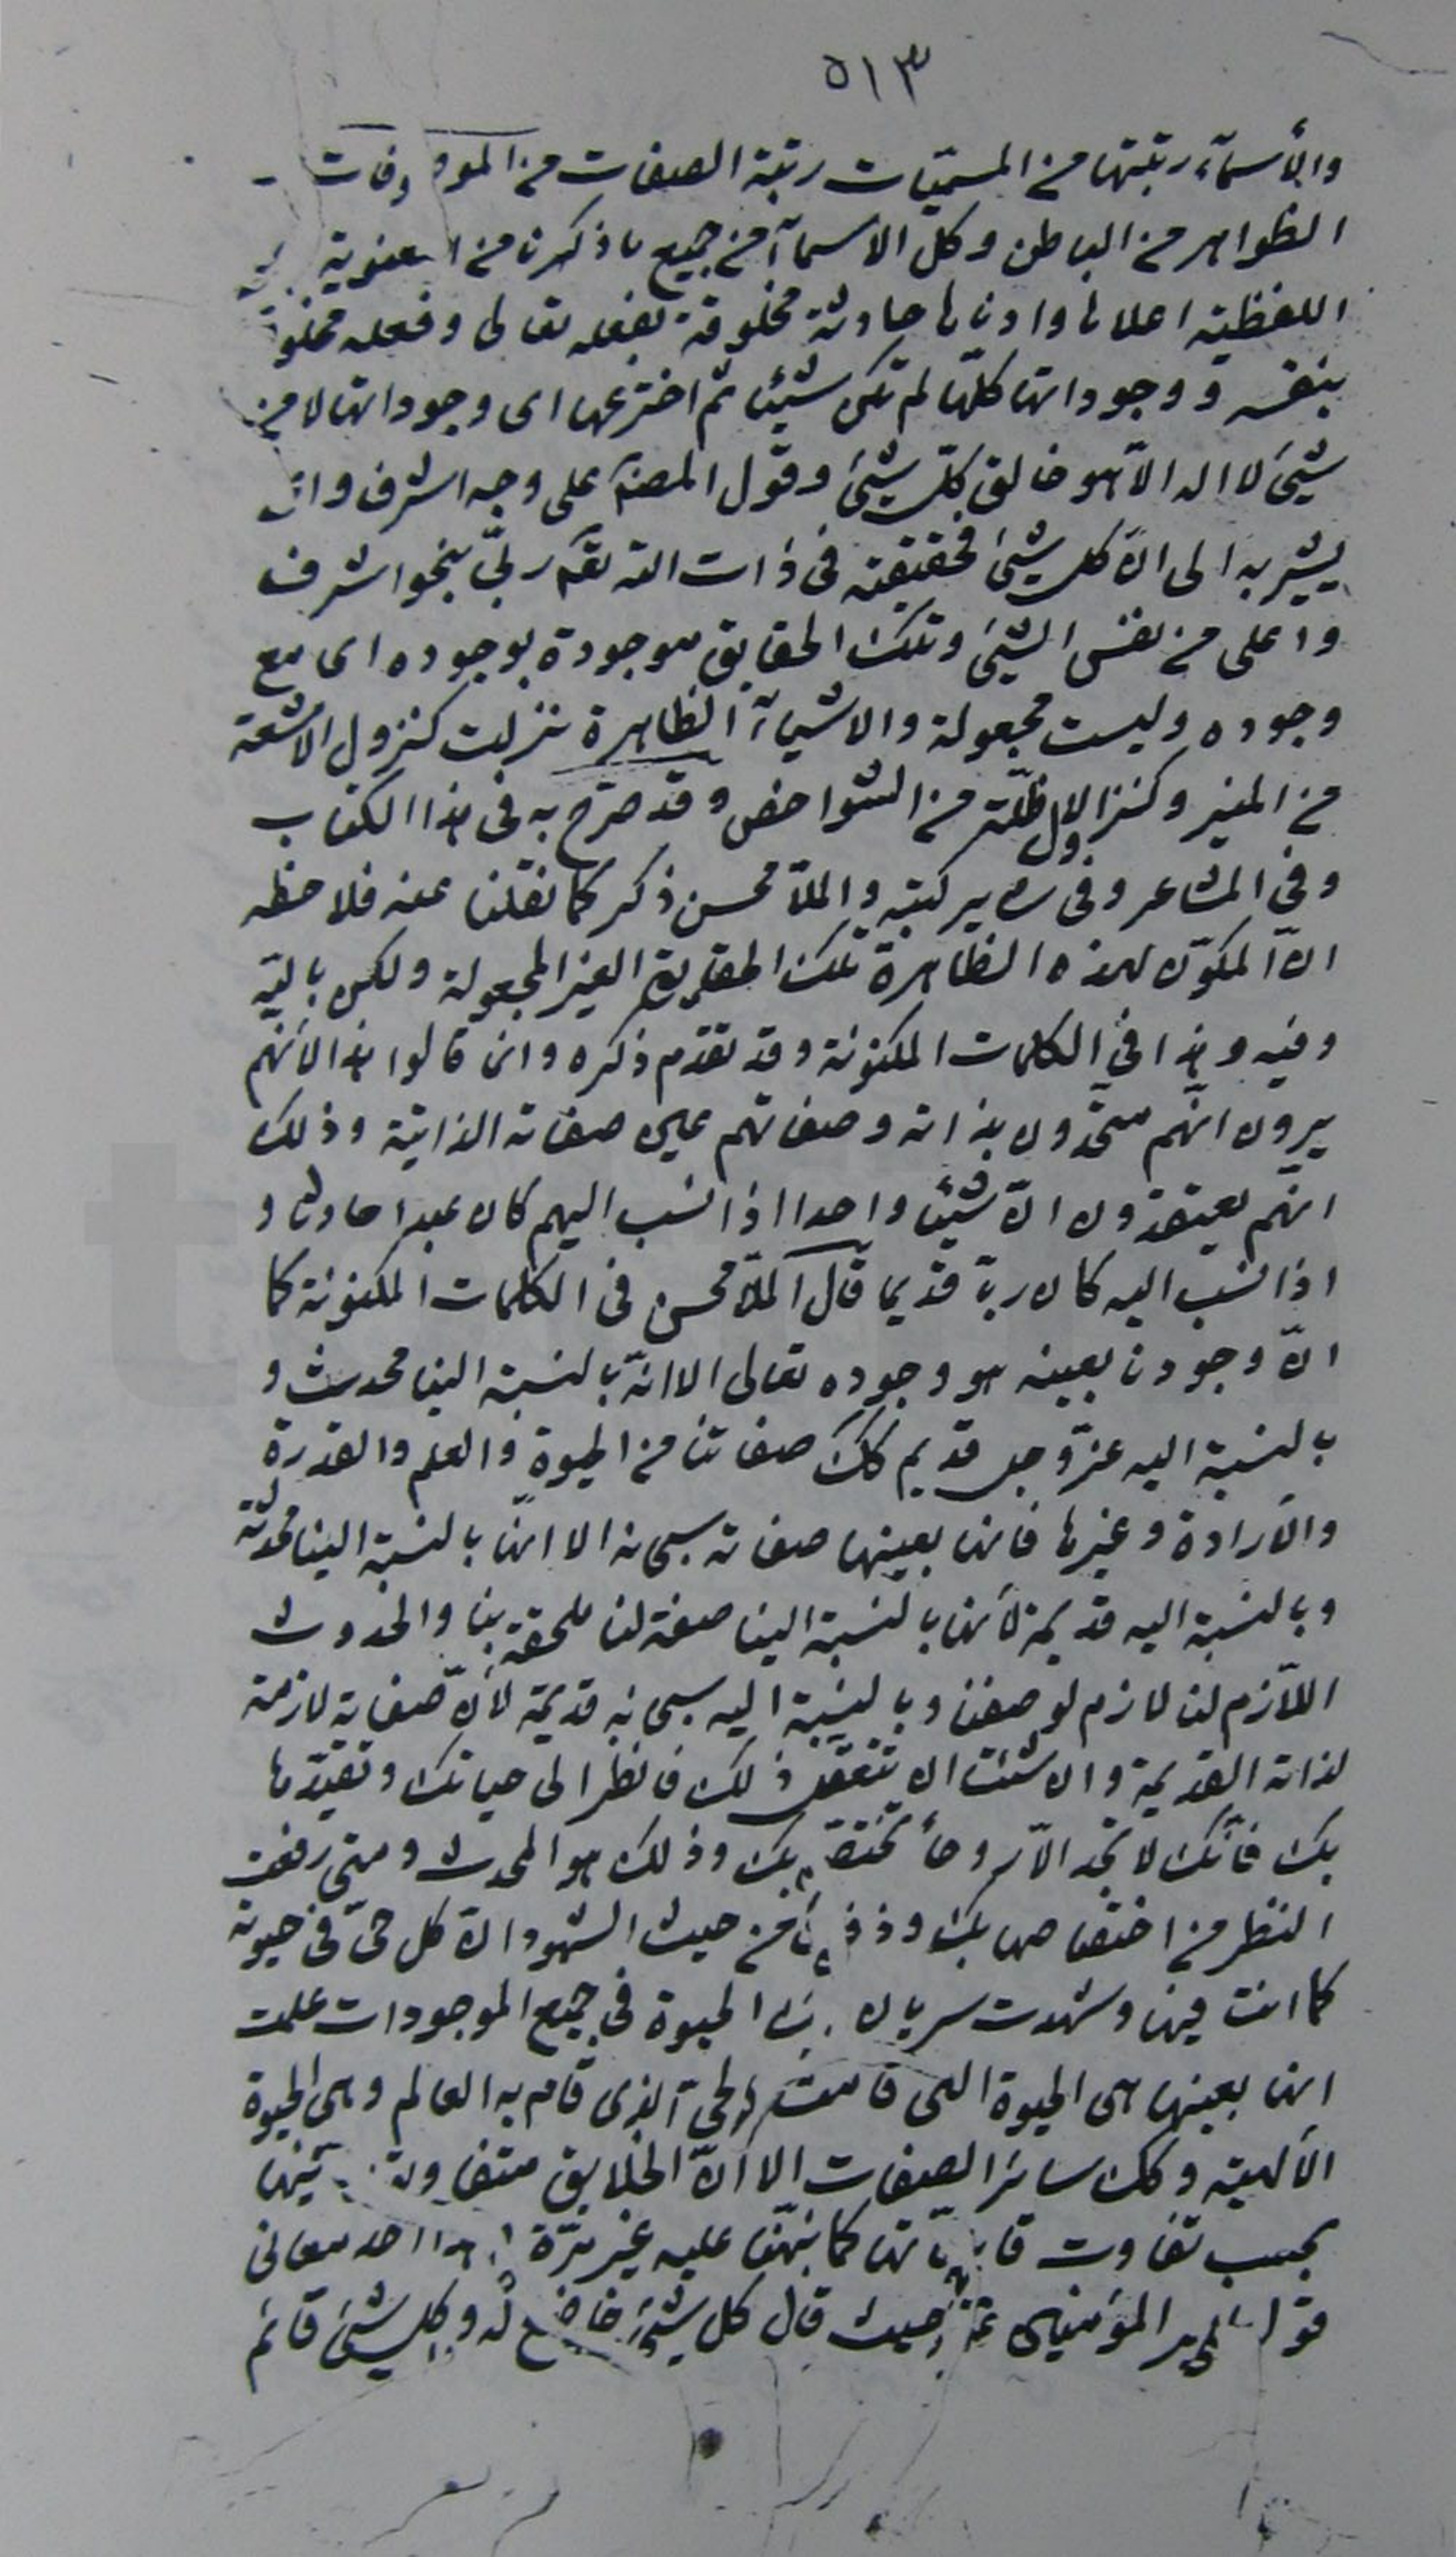 ٥١٣
والأسمآء رتبتها من المسمّيات رتبة الصفات من
الظواهر من الباطن وكل الاسمآء من جميع ما ذكرنا من المعنوية
اللفظية اعلاها وادناها حادثة مخلوقة بفعله تعالى وفعله مخلوق
بنفسه ووجوداتها كلها لم تكن شيئا ثم اخترعها اى وجوداتها لا من
شيئ لا اله الاّ هو خالق كلّ شيئ وقول المصنّف على وجه اشرف وا
يشير به الى انّ كل شيئ فحقيقته فى ذات الله بنحو اشرف
واعلى من نفس الشيئ وتلك الحقايق موجودة بوجوده اى مع
وجوده وليست مجعولة والاشيآء الظاهرة تنزلت كنزول الاشعة
من المنير وكنزول الاظلّة من الشواخص وقد صرّح به فى هذا الكتاب
وفى المشاعر وفى ساير كتبه والملاّ محسن ذكر كما نقلنا عنه فلاحظه
انّ المكوّن لهذه الظاهرة تلك الحقايق الغير المجعولة ولكن باليه
وفيه وهذا فى الكلمات المكنونة وقد تقدم ذكره وانما قالوا هذا لانّهم
يرون انّهم متّحدون بذاته وصفاتهم عين صفاته الذاتية وذلك
انّهم يعتقدون انّ شيئا واحدا اذا نسب اليهم كان عبدا حادثا و
اذا نسب اليه كان ربّا قديما قال الملاّ محسن فى الكلمات المكنونة كما
انّ وجودنا بعينه هو وجوده تعالى الا انّه بالنسبة الينا محدث و
بالنسبة اليه عزّ وجل قديم كك صفاتنا من الحيوة والعلم والقدرة
والارادة وغيرها فانها بعينها صفاته سبحانه الا انّها بالنسبة الينا محدثة
وبالنسبة اليه قديمة لأنها بالنسبة الينا صفة لنا ملحقة بنا والحدوث
اللاّزم لنا لازم لوصفنا وبالنسبة اليه سبحانه قديمة لأنّ صفاته لازمة
لذاته القديمة وان شئت ان تتعقل ذلك فانظر الى حياتك وتقيّدها
بك فأنّك لا تجد الاّ روحاً تختصّ بك وذلك هو المحدث ومتى رفعت
النظر من اختصاصها بك وذقت من حيث الشهود انّ كل حىّ فى حيوته
كما انت فيها وشهدت سريان تلك الحيوة فى جميع الموجودات علمت
انها بعينها هى الحيوة التى قامت بالحىّ الذى قام به العالم وهى الحيوة
الالهية وكك سائر الصفات الا انّ الخلايق متفاوتة فيها
بحسب تفاوت قابلياتها كما نبّهنا عليه غير مرّة وهذا احد معانى
قول امير المؤمنين حيث قال كل شيئ خاضع له وكل شيئ قائم